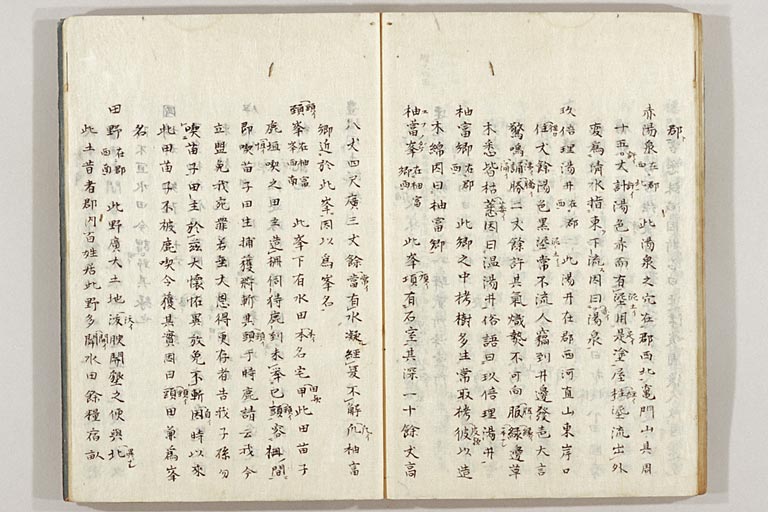 郡
赤湯泉在郡西北 此湯泉之穴在郡西北竈門山其周
十五丈計湯色赤而有埿用是塗屋柱埿流出外
変為情水指東下流因曰湯泉
玖倍理湯井在郡西 此湯井在郡西河直山東岸口
住丈餘湯色黒埿常不流人竊到井邊發色大言
驚鳴涌騰二丈餘許其氣熾𤍠不可向服縁邊草
木悉皆枯萎因曰温湯井俗語曰玖倍理湯井
柚富郷在郡西 此郷之中栲樹多生常取栲彼以造
木綿因曰柚富郷
柚富峯在柚富郷西 此峯頂有石室其深一十餘丈高
八丈四尺廣三丈餘常有水凝經夏不解凡柚富
郷近於此峯因以為峯名
頭峯在柚富峯西南 此峯下有水田本名宅田此田苗子
鹿垣喫之田主造柵伺待鹿到来挙己頭容柵間
即喫苗子田主捕獲将斬其頭于時鹿請云我今
立盟免我死罪若垂大恩得更存者告我子孫勿
喫苗子田主於茲大懐恠異放免不斬因時以来
此田苗子不被鹿喫今獲其實因曰頭田兼為峯
名
田野在郡西南 此野廣大土地沃腴開墾之便無比
此土昔者郡内百姓居此野多開水田餘粮宿畝